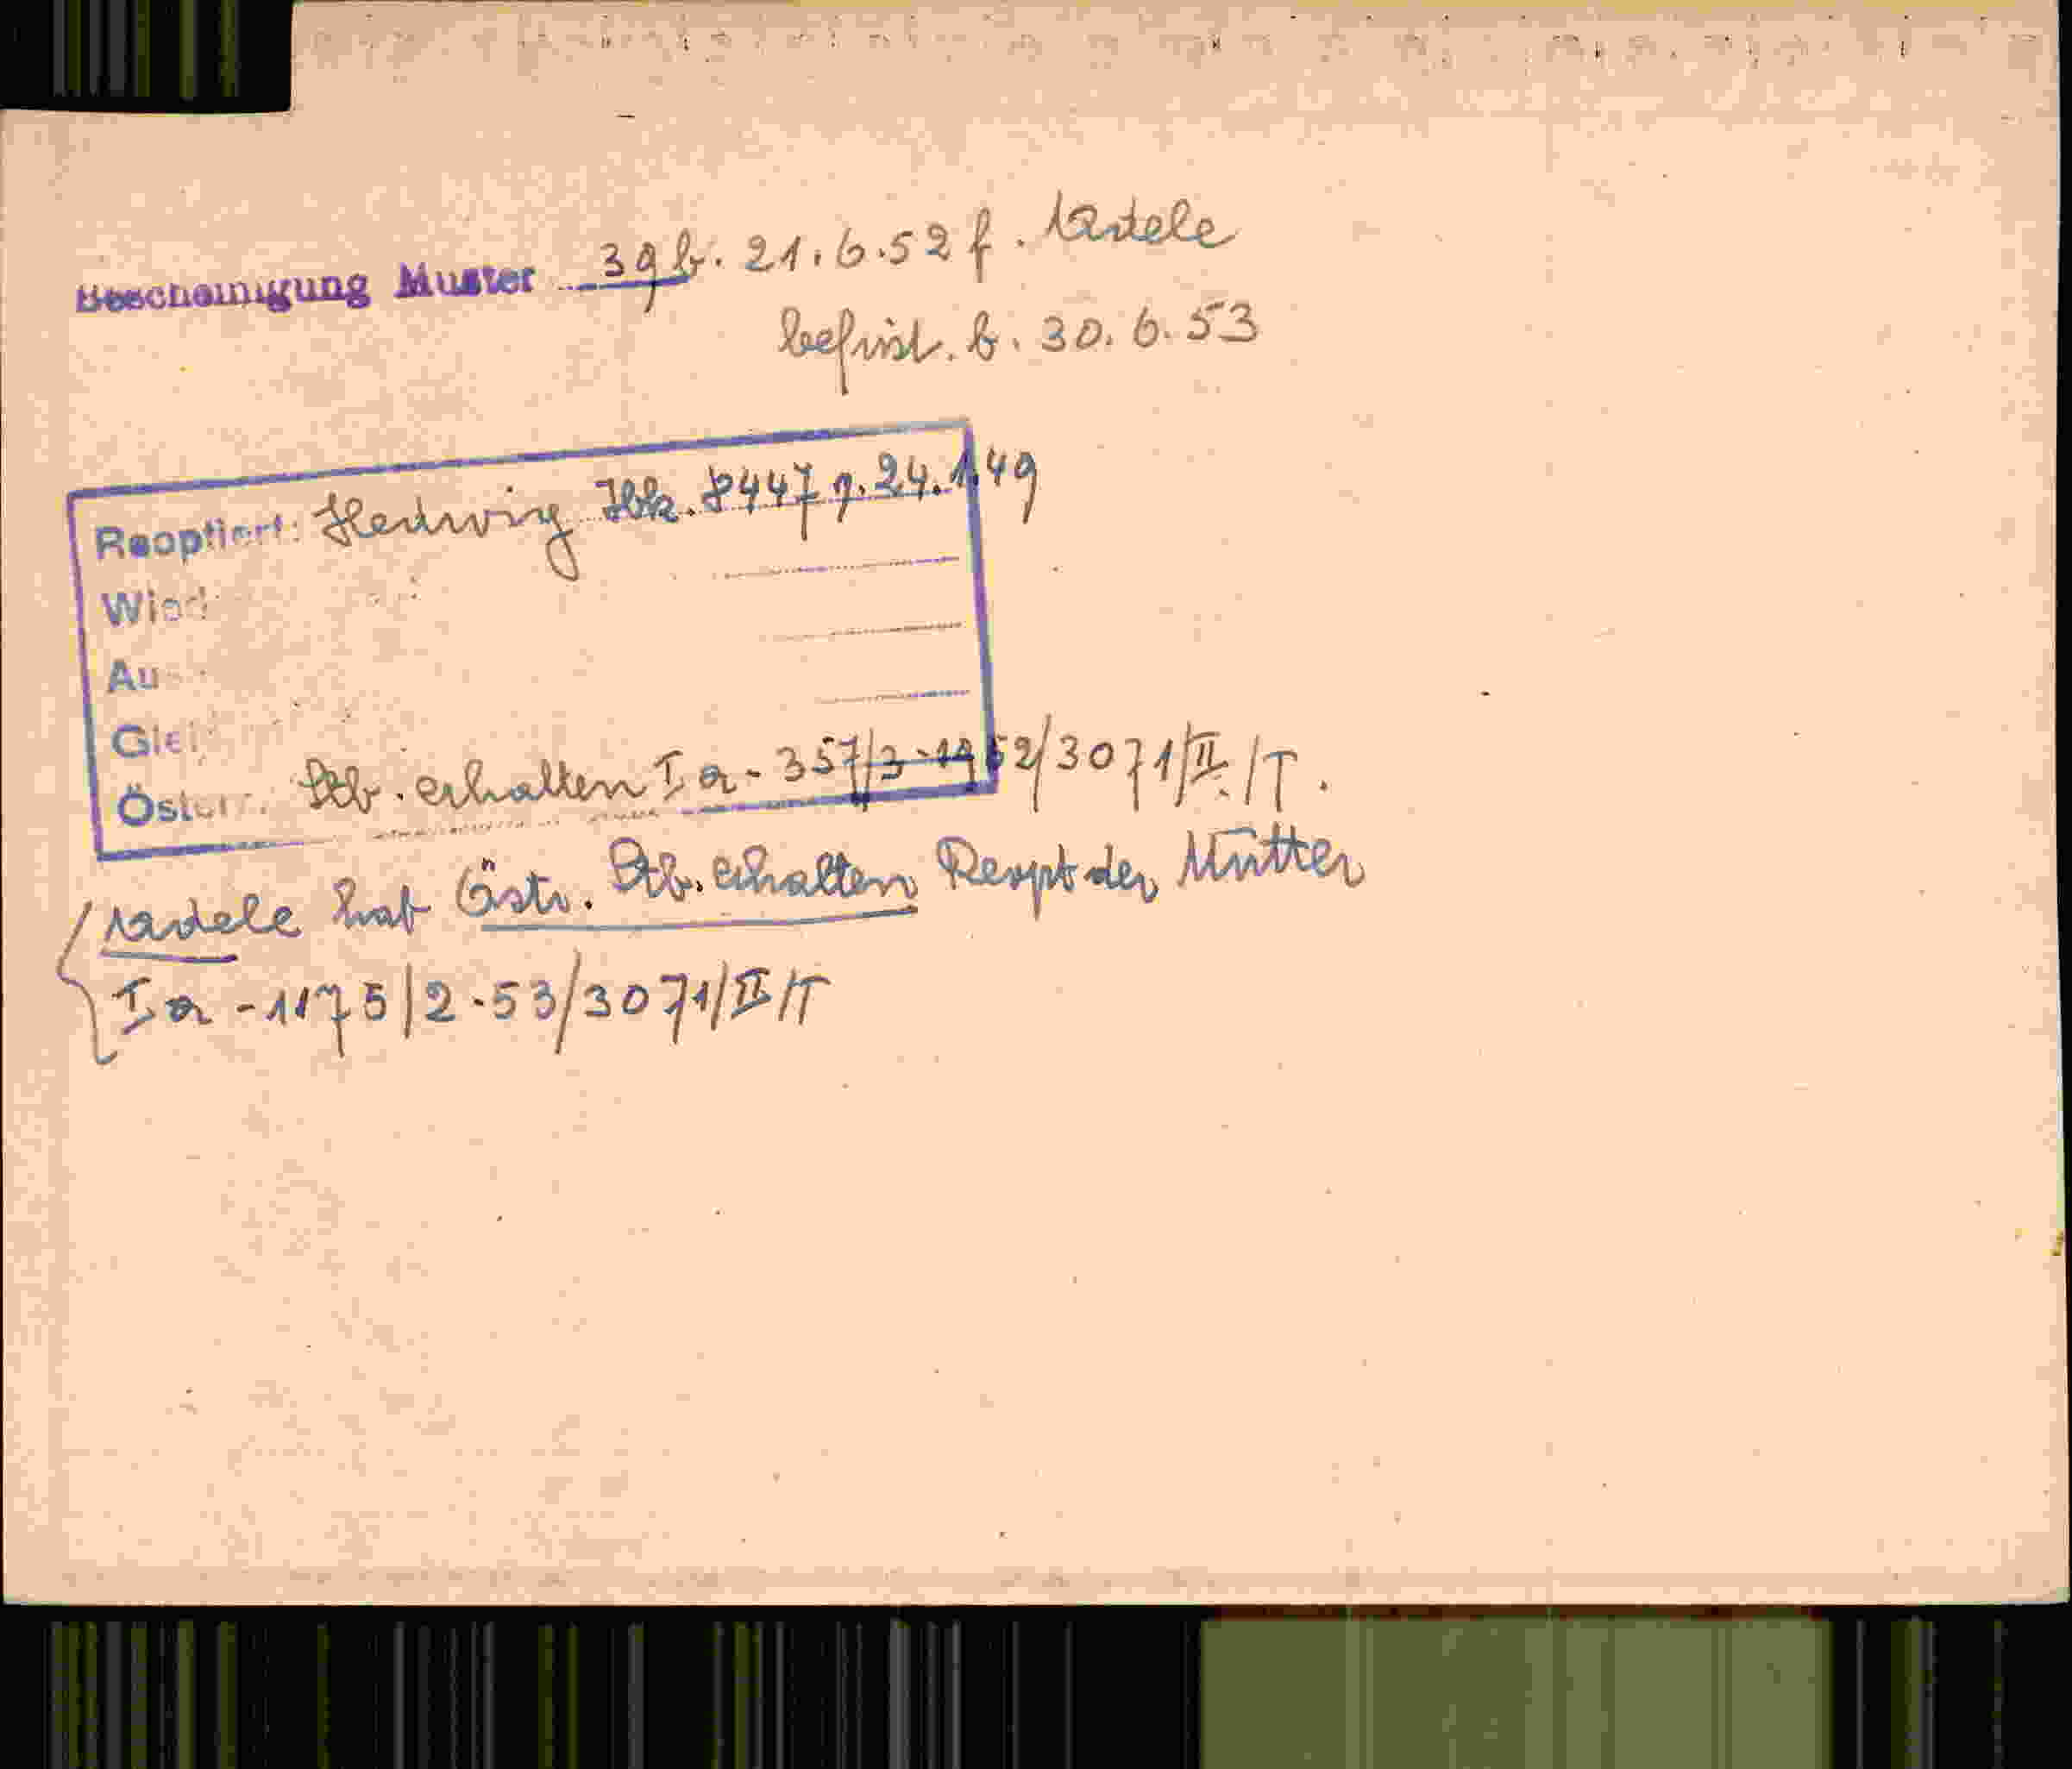 Bescheinigung Muster 39 b. 21.6.52 f. Adele
befrist. b. 30.6.53
Reoptiert: Hedwig Hbk. 8447 v. 24.1.49
Wied
Au
Glei
Österr. Stb. erhalten I a - 357/3-1952/3071/II/T.
Adele hat Östr. Stb. erhalten Reopt der Mutter
I a - 1175/2-53/3071/II/T